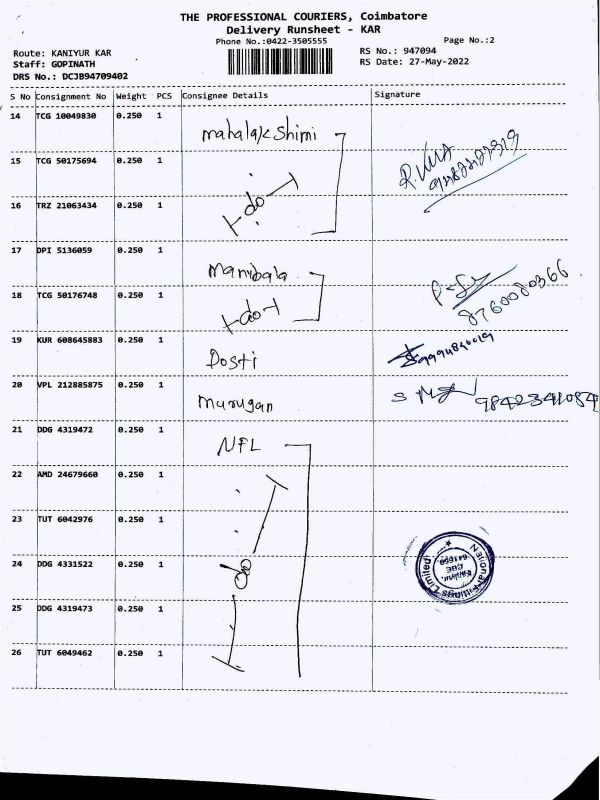 THE PROFESSIONAL COURIERS, Coimbatore
Delivery Runsheet - KAR
Phone No.:0422-3505555
Page No.:2
Route: KANIYUR KAR
RS No.: 947094
Staff: GOPINATH
RS Date: 27-May-2022
DRS No.: DCJB94709402
S No Consignment No Weight PCS Consignee Details Signature
14 TCG 10049830 0.250 1
mahalakshimi
15 TCG 50175694 0.250 1
do
16 TRZ 21063434 0.250 1
17 DPI 5136059 0.250 1
Manibala
18 TCG 50176748 0.250 1
do
8760080366
19 KUR 608645883 0.250 1
Dosti
20 VPL 212885875 0.250 1
Murugan
9842341084
21 DDG 4319472 0.250 1
NFL
22 AMD 24679660 0.250 1
23 TUT 6042976 0.250 1
24 DDG 4331522 0.250 1
do
National Fittings Limited
25 DDG 4319473 0.250 1
26 TUT 6049462 0.250 1